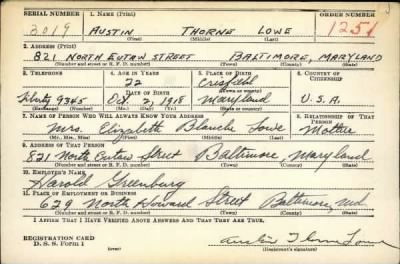 SERIAL NUMBER 1. NAME (Print) ORDER NUMBER
2019 AUSTIN THORNE LOWE 1251
(First) (Middle) (Last)
2. ADDRESS (Print)
821 NORTH EUTAW STREET BALTIMORE, MARYLAND
(Number and street or R. F. D. number) (Town) (County) (State)
3. TELEPHONE 4. AGE IN YEARS 5. PLACE OF BIRTH 6. COUNTRY OF CITIZENSHIP
22 Crisfield
DATE OF BIRTH (Town or county)
Liberty 9365 Oct. 2, 1918 Maryland U.S.A.
(Mo.) (Day) (Yr.) (State or country)
7. NAME OF PERSON WHO WILL ALWAYS KNOW YOUR ADDRESS 8. RELATIONSHIP OF THAT PERSON
Mrs. Elizabeth Blanche Lowe Mother
(Mr., Mrs., Miss) (First) (Middle) (Last)
9. ADDRESS OF THAT PERSON
821 North Eutaw Street Baltimore, Maryland
(Number and street or R. F. D. number) (Town) (County) (State)
10. EMPLOYER'S NAME
Harold Greenburg
11. PLACE OF EMPLOYMENT OR BUSINESS
629 North Howard Street Baltimore, Md.
(Number and street or R. F. D. number) (Town) (County) (State)
I AFFIRM THAT I HAVE VERIFIED ABOVE ANSWERS AND THAT THEY ARE TRUE.
REGISTRATION CARD
D. S. S. Form 1 Austin Thorne Lowe
(Registrant's signature)